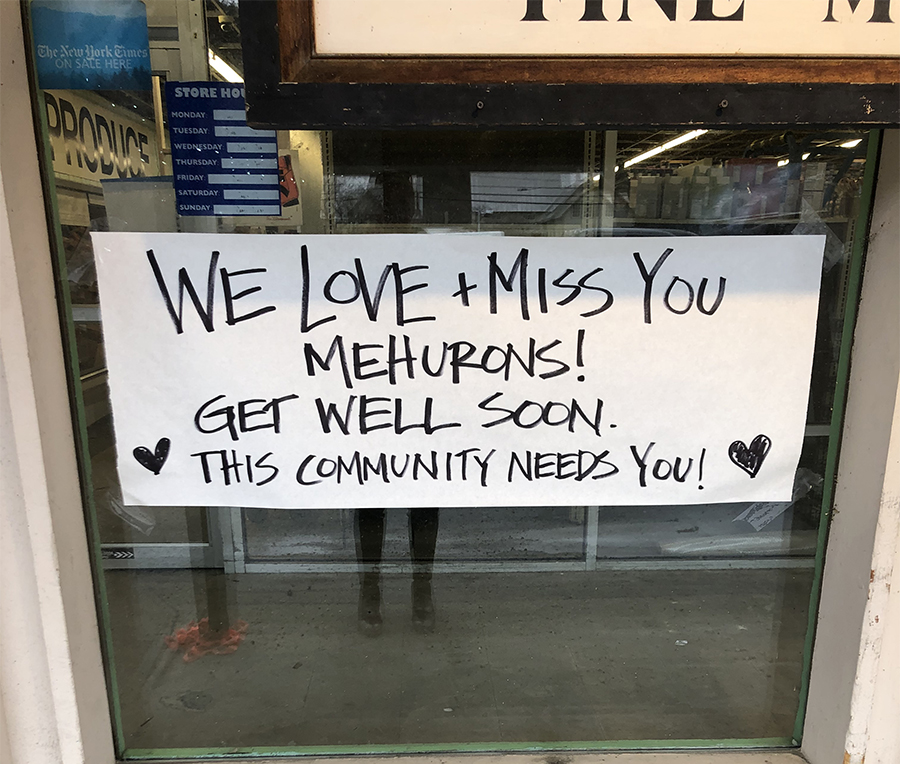 FINE M
The New York Times
ON SALE HERE
PRODUCE
STORE HOU
MONDAY
TUESDAY
WEDNESDAY
THURSDAY
FRIDAY
SATURDAY
SUNDAY
WE LOVE + MISS YOU
MEHURONS!
GET WELL SOON.
THIS COMMUNITY NEEDS YOU!